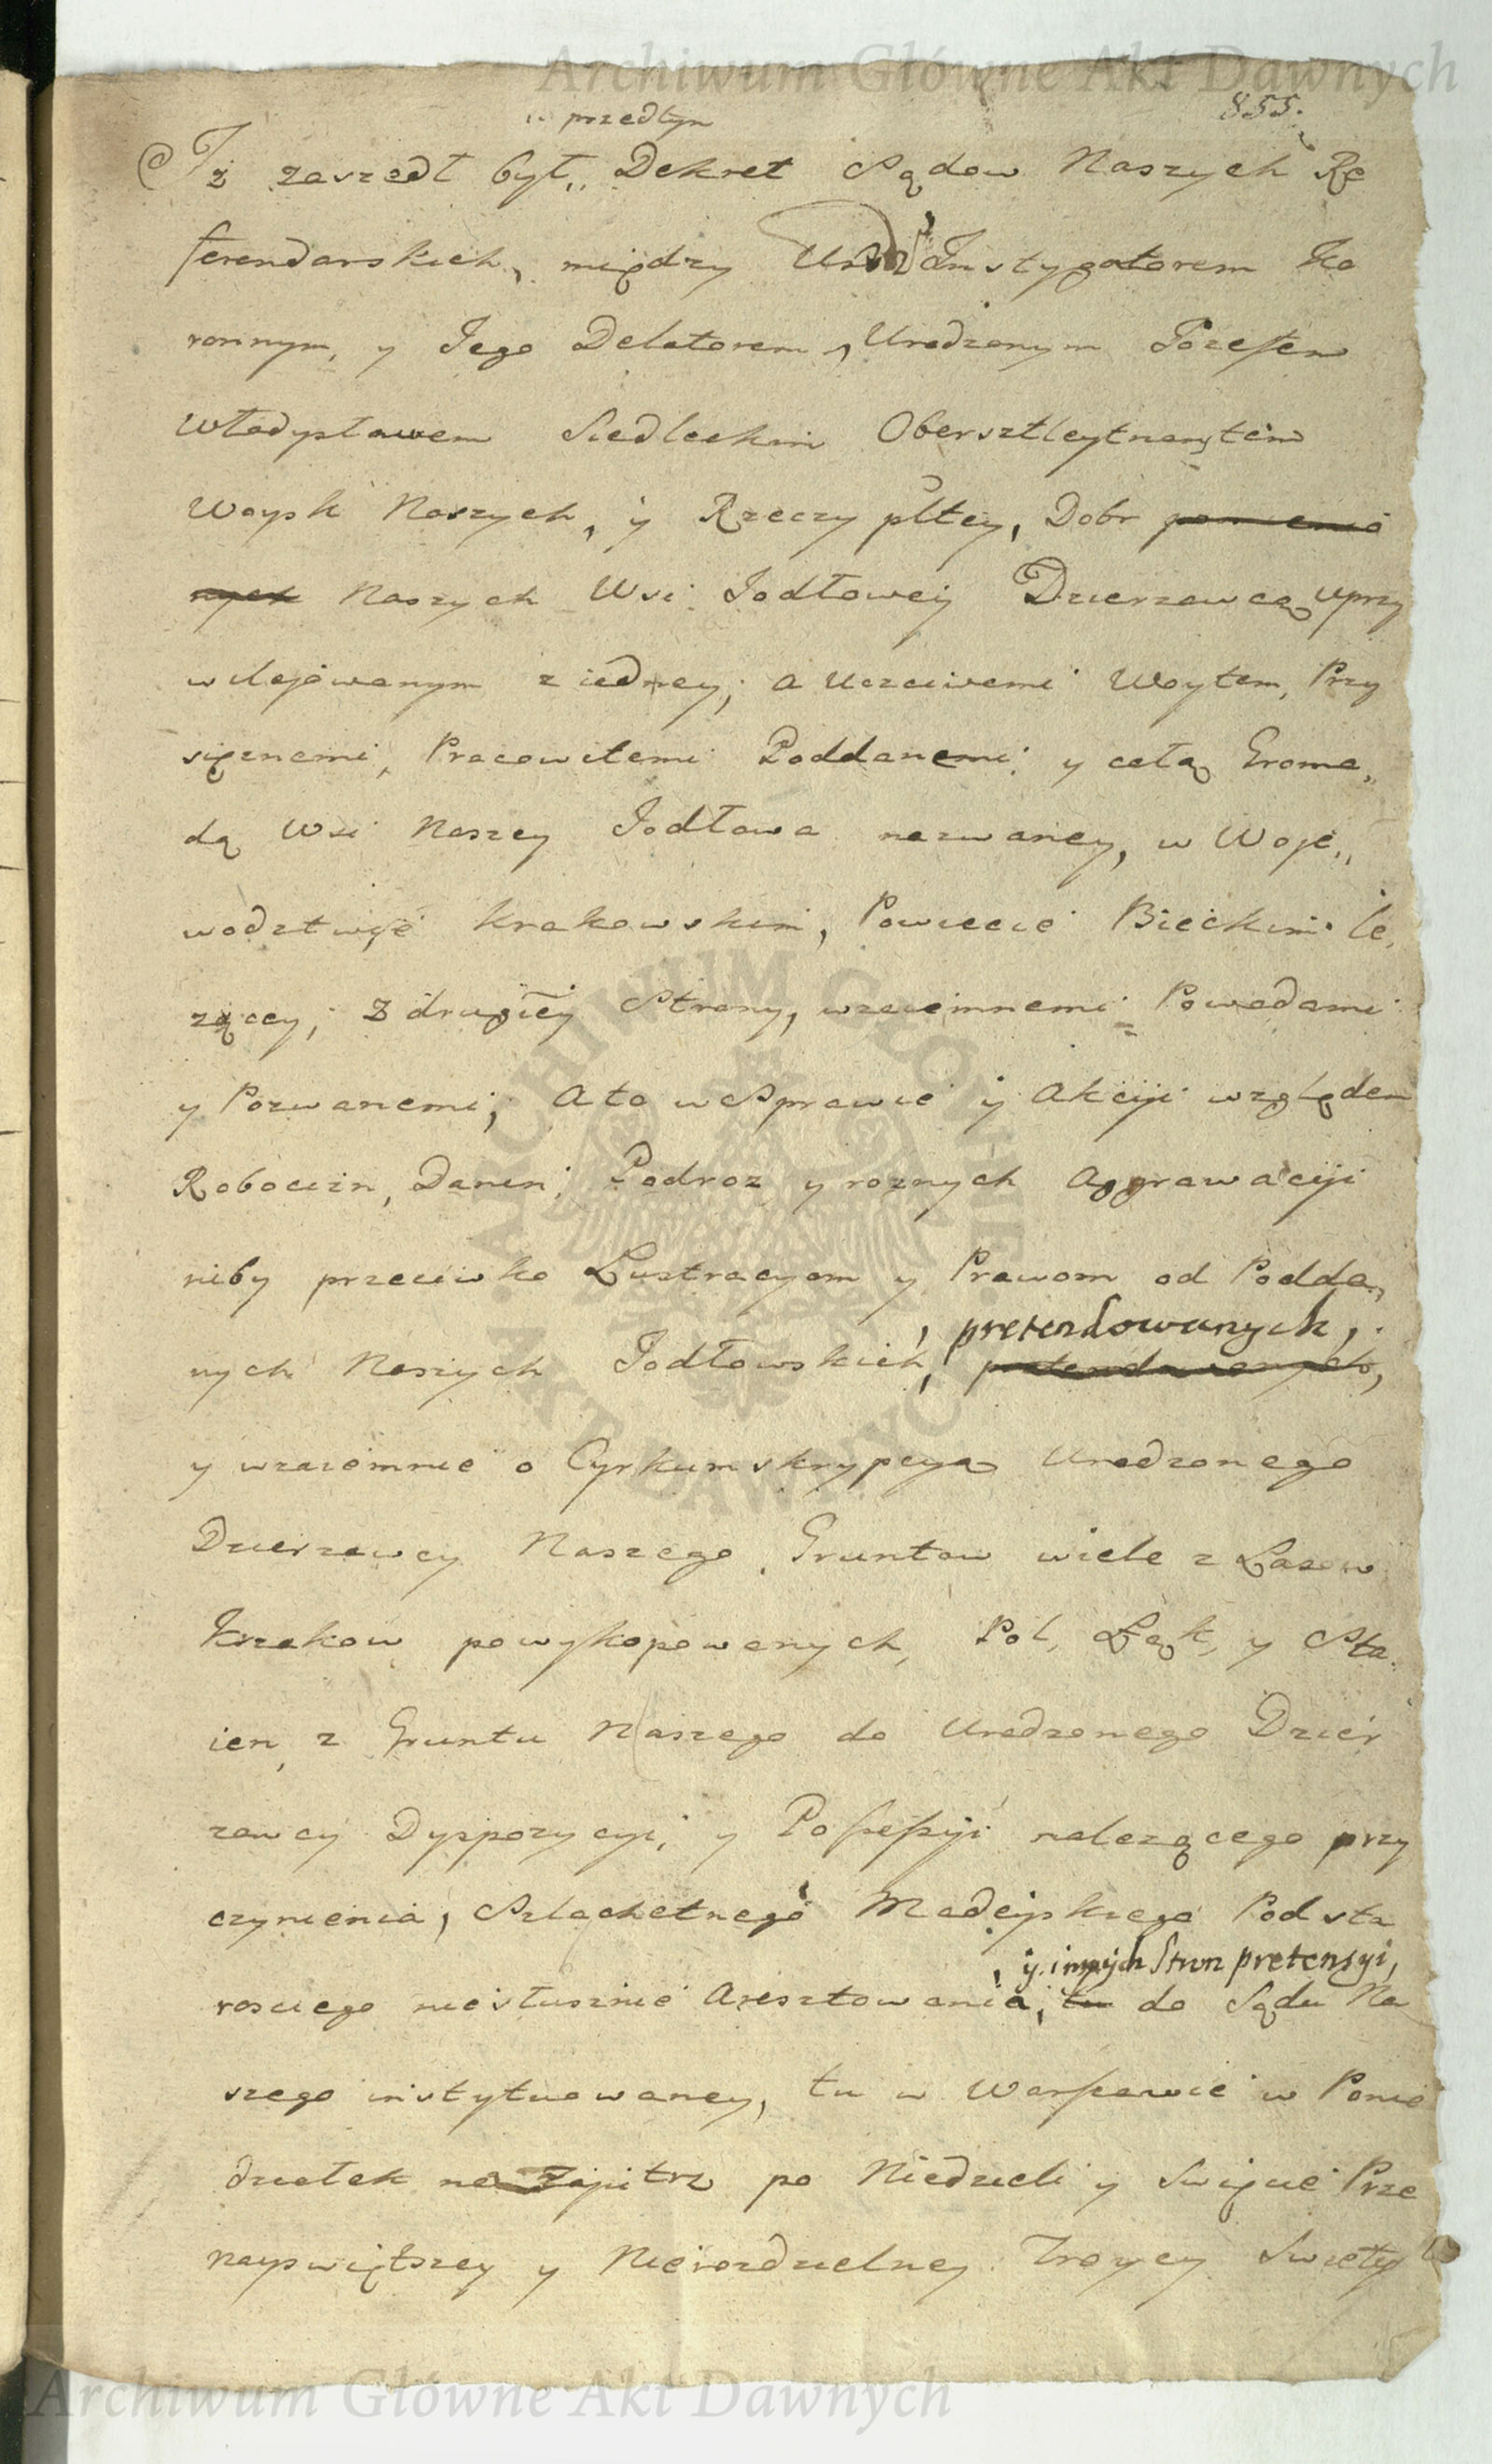 Archiwum Główne Akt Dawnych
855.
przedtym
Iż zaszedł był,, Dekret Sądow Naszych Re
ferendarskich, między Instygatorem Ko
ronnym, y Jego Delatorem, Urodzonym Jozefem
Władysławem Siedleckim Obersztleytnantem
Woysk Naszych, y Rzeczypltey, Dobr pomienio
nych Naszych Wsi Jodłowey Dzierzawcą uprzy
wilejowanym z iedney; a Uczciwemi Woytem, Przy
siężnemi, Pracowitemi Poddanemi y całą Groma,,
dą Wsi Naszey Jodłowa nazwaney, w Woje,,
wodztwie Krakowskim, Powiecie Bieckim le,
zącey, z drugiey Strony, wzaiemnemi Powodami
y Pozwanemi; Ato w Sprawie y Akcyi względem
Robocizn, Danin, Podroz y roznych Aggrawacyi
niby przeciwko Lustracyom y Prawom od Podda,
pretendowanych,
nych Naszych Jodłowskich, pretendowanych,
y wzaiemnie o Cyrkumskrypcyą Urodzonego
Dzierzawcy Naszego Gruntow wiele z Lasow
Krzakow powykopowanych, Pol, Łąk, y Sta
ien, z Gruntu Naszego do Urodzonego Dzier
zawcy Dyspozycyi, y Possessyi nalezącego przy
czynienia, Szlachetnego Madeyskiego Podsta
y innych Stron pretensyi,
rosciego niesłusznie Aresztowania, tu do Sądu Na
szego instytuowaney, tu w Warszawie w Ponie
działek na Zajutrz po Niedzieli y Swięcie Prze
nayswiętszey y Nierozdzielney Troycy Swięty
ARCHIWUM GŁÓWNE AKT DAWNYCH
Archiwum Główne Akt Dawnych